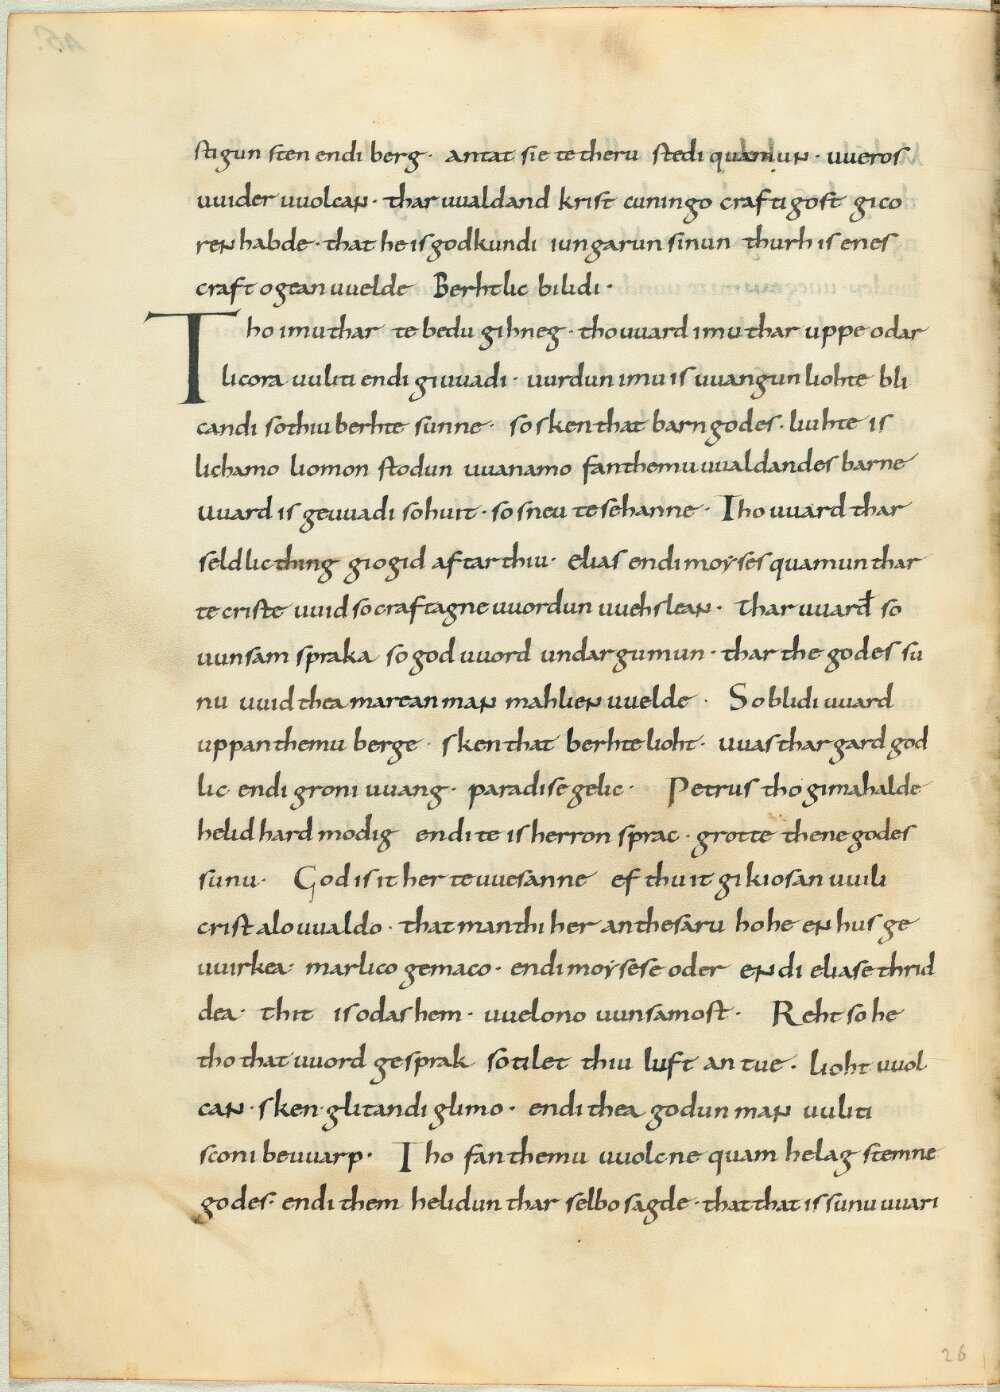 stigun sten endi berg · antat sie te theru stedi quamun · uueros
uuider uuolcan · thar uualdand krist cuningo craftigost gico
ren habde · that he is godkundi iungarun sinun thurh is enes
craft ogean uuelde Berhtlic bilidi ·
Tho imu thar te bedu gihneg · tho uuard imu thar uppe odar
licora uuliti endi giuuadi · uurdun imu is uuangun liohte bli
candi so thiu berhte sunne · so sken that barn godes · liuhte is
lichamo liomon stodun uuanamo fan themu uualdandes barne
uuard is geuuadi so huit · so sneu te sehanne · Tho uuard thar
seldlic thing giogid aftar thiu · elias endi moyses quamun thar
te criste uuid so craftagne uuordun uuehslean · thar uuarđ so
uunsam spraka so god uuord undar gumun · thar the godes su
nu uuid thea marean man mahlien uuelde · So blidi uuard
uppan themu berge · sken that berhte lioht · uuas thar gard god
lic endi groni uuang · paradise gelic · Petrus tho gimahalde
helid hard modig endi te is herron sprac · grotte thene godes
sunu · God is it her te uuesanne ef thu it gikiosan uuili
crist alouualdo · that man thi her an thesaru hohe en hus ge
uuirkea · marlico gemaco · endi moysese oder endi eliase thrid
dea · thit is odas hem · uuelono uunsamost · Reht so he
tho that uuord gesprak so tilet thiu luft an tue · lioht uuol
can · sken · glitandi glimo · endi thea godun man uuliti
sconi beuuarp · Tho fan themu uuolcne quam helag stemne
godes · endi them helidun thar selbo sagde · that that is sunu uuari
26